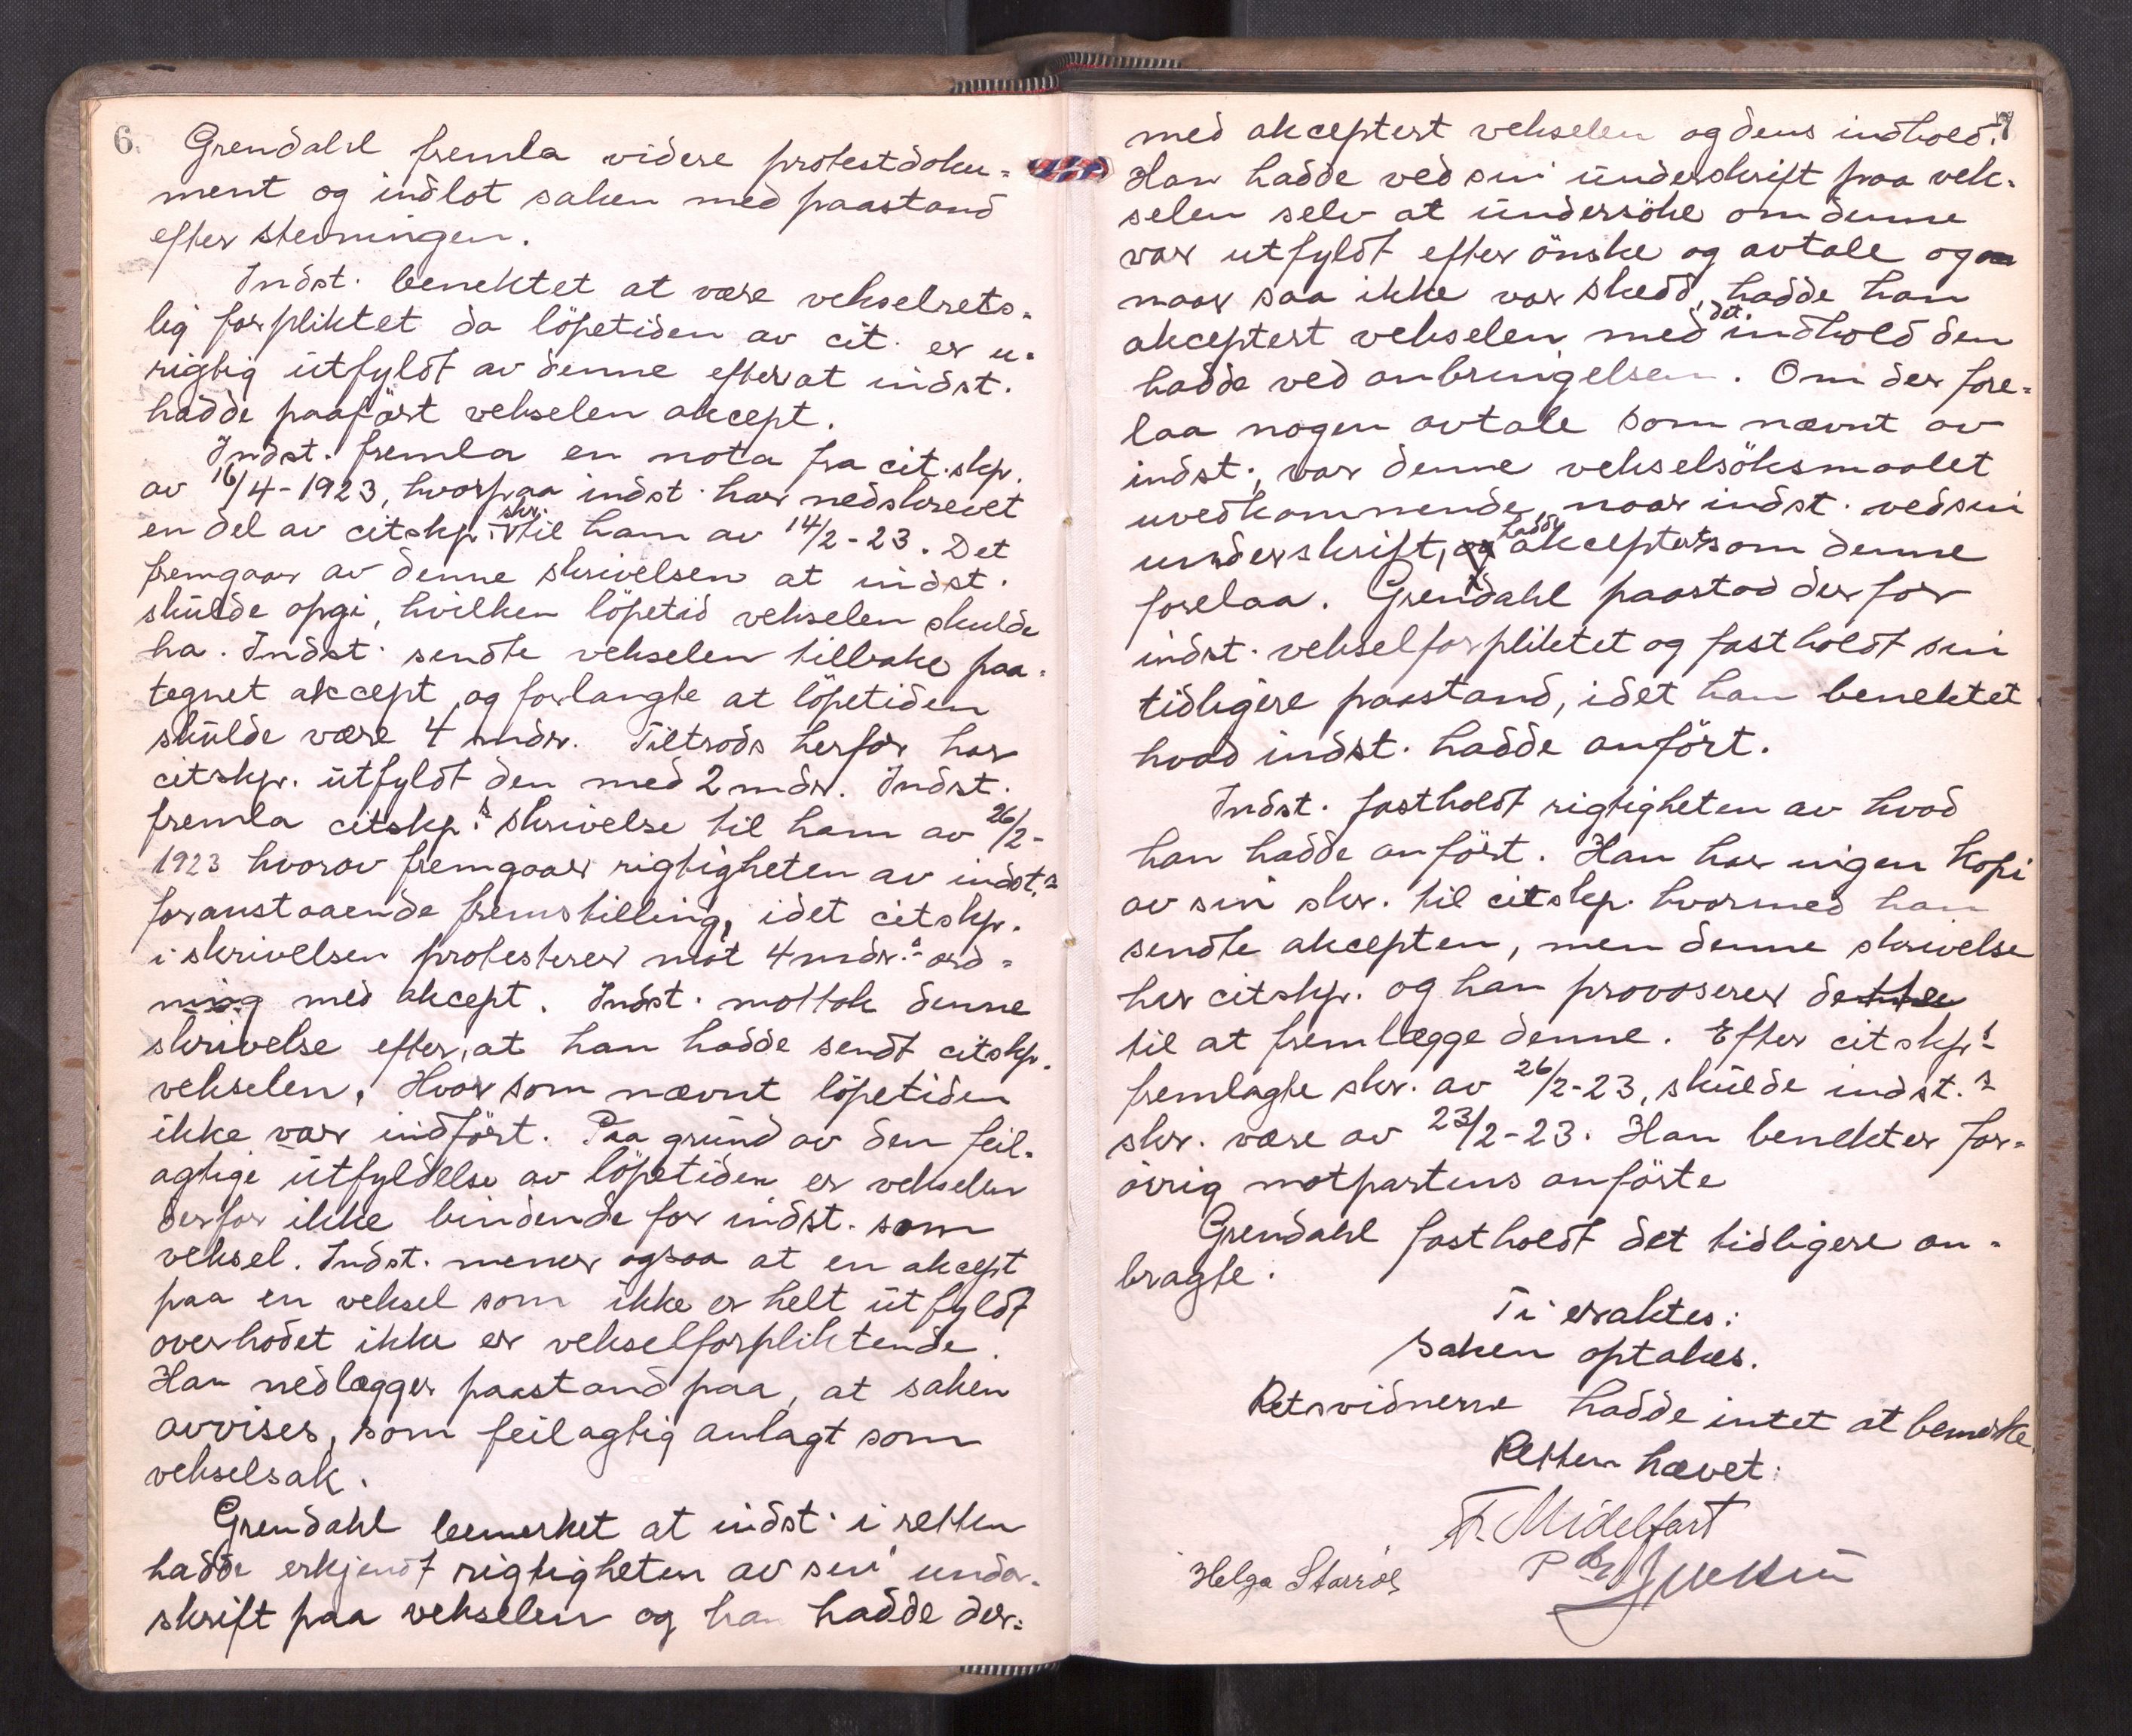 6.
Grendahl fremla videre protestdoku=
ment og indlot saken med paastand
efter stevningen.
Indst. benektet at være vekselrets=
lig forpliktet da löpetiden av cit. er u=
rigtig utfyldt av denne efterat indst.
hadde paaført vekselen akcept.
Indst. fremla en nota fra cit.skp.
av 16/4-1923, hvorpaa indst. har nedskrevet
en del av citskp.s skr. til ham av 14/2-23. Det
fremgaar av denne skrivelsen at indst.
skulde opgi, hvilken löpetid vekselen skulde
ha. Indst. sendte vekselen tilbake paa=
tegnet akcept og forlangte at löpetiden
skulde være 4 mdr. Tiltrods herfor har
citskp. utfyldt den med 2 mdr. Indst.
fremla citskp.s skrivelse til ham av 26/2-
1923 hvorav fremgaar rigtigheten av indst.s
foranstaaende fremstilling, idet citskp.
i skrivelsen protesterer mot 4 mdr.s ord=
ning med akcept. Indst. mottok denne
skrivelse efter, at han hadde sendt citskp.
vekselen. Hvor som nævnt löpetiden
ikke var indført. Paa grund av den feil=
agtige utfyldelse av löpetiden er vekselen
derfor ikke bindende for indst. som
veksel. Indst. mener ogsaa at en akcept
paa en veksel som ikke er helt utfyldt
overhodet ikke er vekselforpliktende.
Han nedlægger paastand paa, at saken
avvises, som feilagtig anlagt som
vekselsak.
Grendahl bemerket at indst. i retten
hadde erkjendt rigtigheten av sin under=
skrift paa vekselen og han hadde der=
7
med akceptert vekselen og dens indhold.
Han hadde ved sin underskrift paa vek=
selen selv at undersöke om denne
var utfyldt efter önske og avtale og
naar saa ikke var skedd, hadde han
akceptert vekselen med det indhold den
hadde ved anbringelsen. Om der fore=
laa nogen avtale som nævnt av
indst., var denne vekselsöksmaalet
uvedkommende, naar indst. ved sin
underskrift, og hadde akceptert som denne
forelaa. Grendahl paastod derfor
indst. vekselforpliktet og fastholdt sin
tidligere paastand, idet han benektet
hvad indst. hadde anfört.
Indst. fastholdt rigtigheten av hvad
han hadde anfört. Han har ingen kopi
av sin skr. til citskp. hvormed han
sendte akcepten, men denne skrivelse
har citskp. og han provoserer dette
til at fremlægge denne. Efter citskp.s
fremlagte skr. av 26/2-23, skulde indst.s
skr. være av 23/2-23. Han benekter for=
övrig motpartens anförte
Grendahl fastholdt det tidligere an=
bragte.
Ti eraktes:
Saken optakes.
Retsvidnerne hadde intet at bemerke.
Retten hævet.
Fr. Midelfart
Helga Starröe